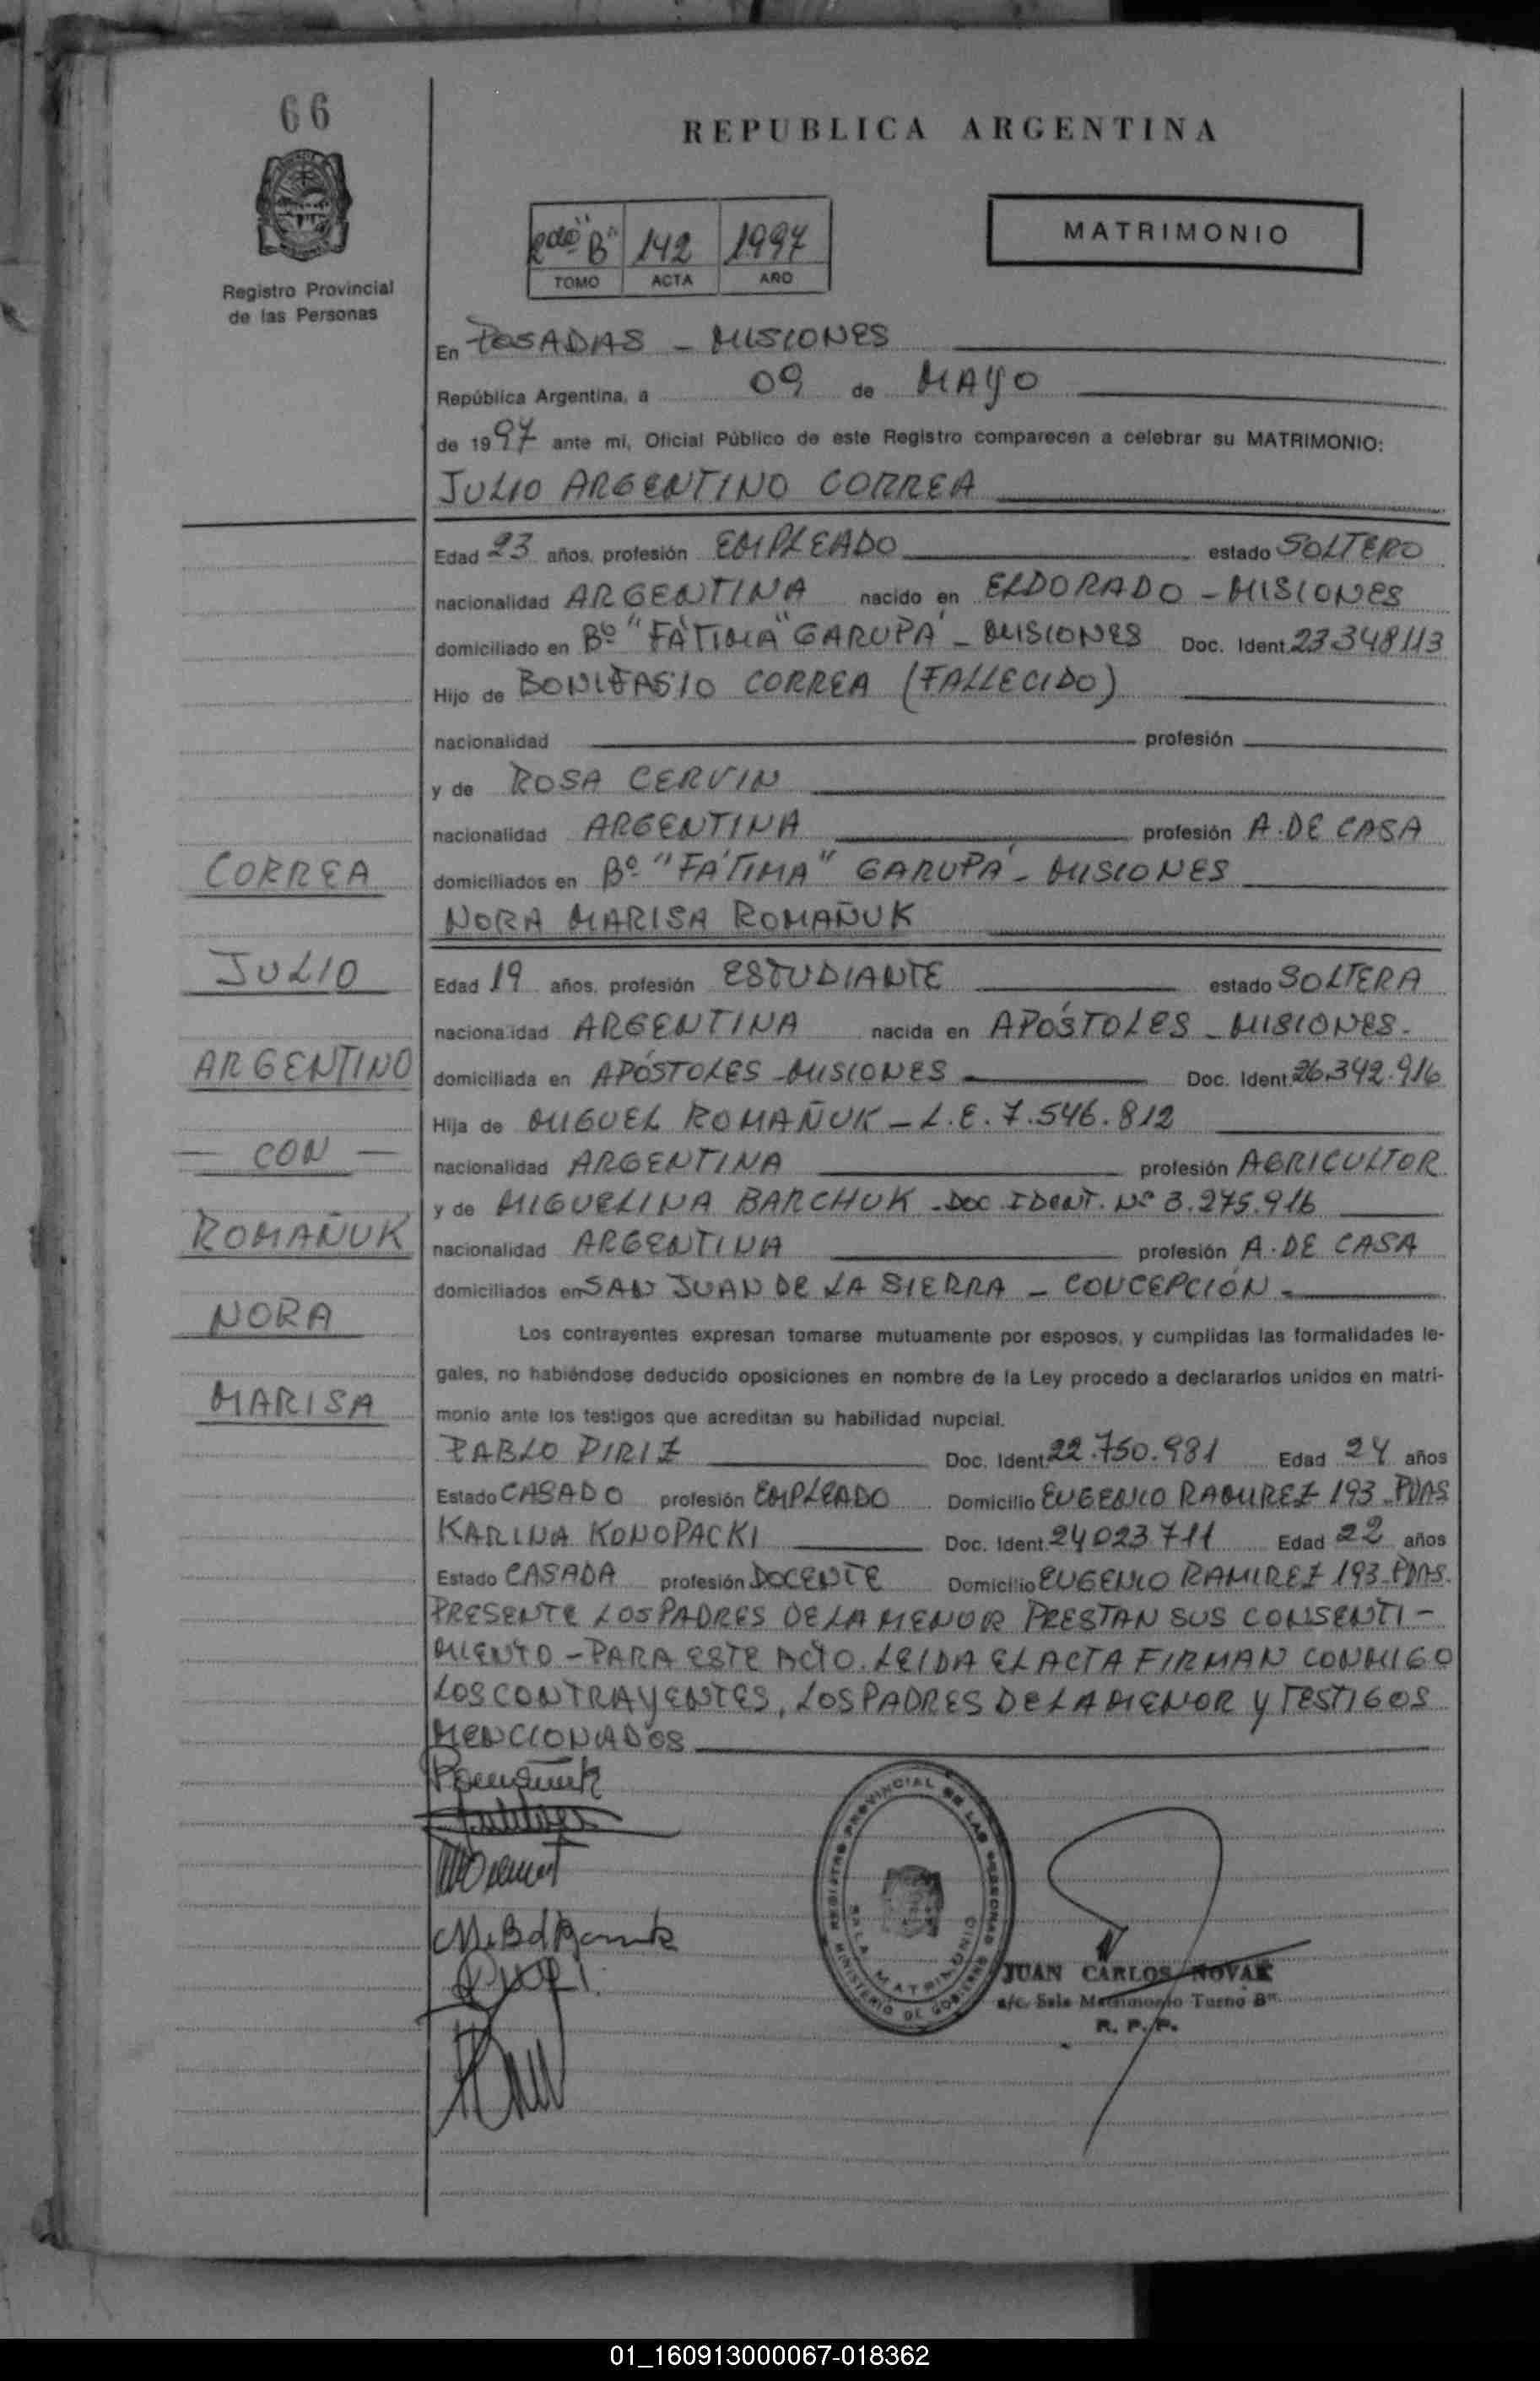 66
REPUBLICA ARGENTINA
Registro Provincial
de las Personas
2do "B" 142 1997
TOMO ACTA AÑO
MATRIMONIO
En POSADAS - MISIONES
República Argentina, a 09 de MAYO
de 1997 ante mí, Oficial Público de este Registro comparecen a celebrar su MATRIMONIO:
JULIO ARGENTINO CORREA
Edad 23 años, profesión EMPLEADO estado SOLTERO
nacionalidad ARGENTINA nacido en ELDORADO - MISIONES
domiciliado en Bº "FÁTIMA" GARUPÁ - MISIONES Doc. Ident. 23.348113
Hijo de BONIFASIO CORREA (FALLECIDO)
nacionalidad profesión
y de ROSA CERVIN
nacionalidad ARGENTINA profesión A. DE CASA
domiciliados en Bº "FÁTIMA" GARUPÁ - MISIONES
NORA MARISA ROMAÑUK
Edad 19 años, profesión ESTUDIANTE estado SOLTERA
nacionalidad ARGENTINA nacida en APÓSTOLES - MISIONES.
domiciliada en APÓSTOLES - MISIONES Doc. Ident. 26.342.916
Hija de MIGUEL ROMAÑUK - L.E. 7.546.812
nacionalidad ARGENTINA profesión AGRICULTOR
y de MIGUELINA BARCHUK - DOC. IDENT. Nº 3.275.916
nacionalidad ARGENTINA profesión A. DE CASA
domiciliados en SAN JUAN DE LA SIERRA - CONCEPCIÓN -
Los contrayentes expresan tomarse mutuamente por esposos, y cumplidas las formalidades le-
gales, no habiéndose deducido oposiciones en nombre de la Ley procedo a declararlos unidos en matri-
monio ante los testigos que acreditan su habilidad nupcial.
PABLO PIRIZ Doc. Ident. 22.750.981 Edad 24 años
Estado CASADO profesión EMPLEADO Domicilio EUGENIO RAMIREZ 193 - PDAS
KARINA KONOPACKI Doc. Ident. 24023.711 Edad 22 años
Estado CASADA profesión DOCENTE Domicilio EUGENIO RAMIREZ 193 - PDAS.
PRESENTE LOS PADRES DE LA MENOR PRESTAN SUS CONSENTI-
MIENTO - PARA ESTE ACTO. LEIDA EL ACTA FIRMAN CONMIGO
LOS CONTRAYENTES, LOS PADRES DE LA MENOR Y TESTIGOS
MENCIONADOS
CORREA
JULIO
ARGENTINO
- CON -
ROMAÑUK
NORA
MARISA
REGISTRO PROVINCIAL DE LAS PERSONAS
MINISTERIO DE GOBIERNO
SALA MATRIMONIO
JUAN CARLOS NOVAK
a/c. Sala Matrimonio Turno B"
R. P. P.
01_160913000067-018362